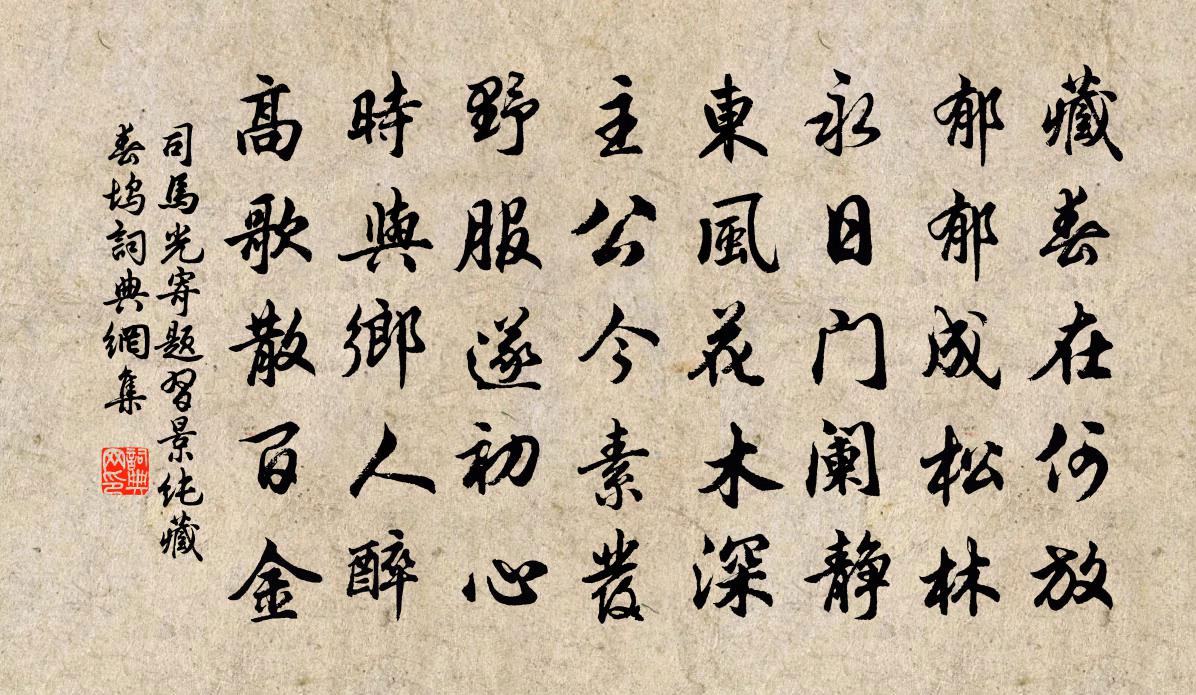 藏春在何放
郁郁成松林
永日门阑静
東風花木深
主公今素發
野服遂初心
時與鄉人醉
高歌散百金
司馬光寄题習景纯藏
春坞詞典網集
詞典网印